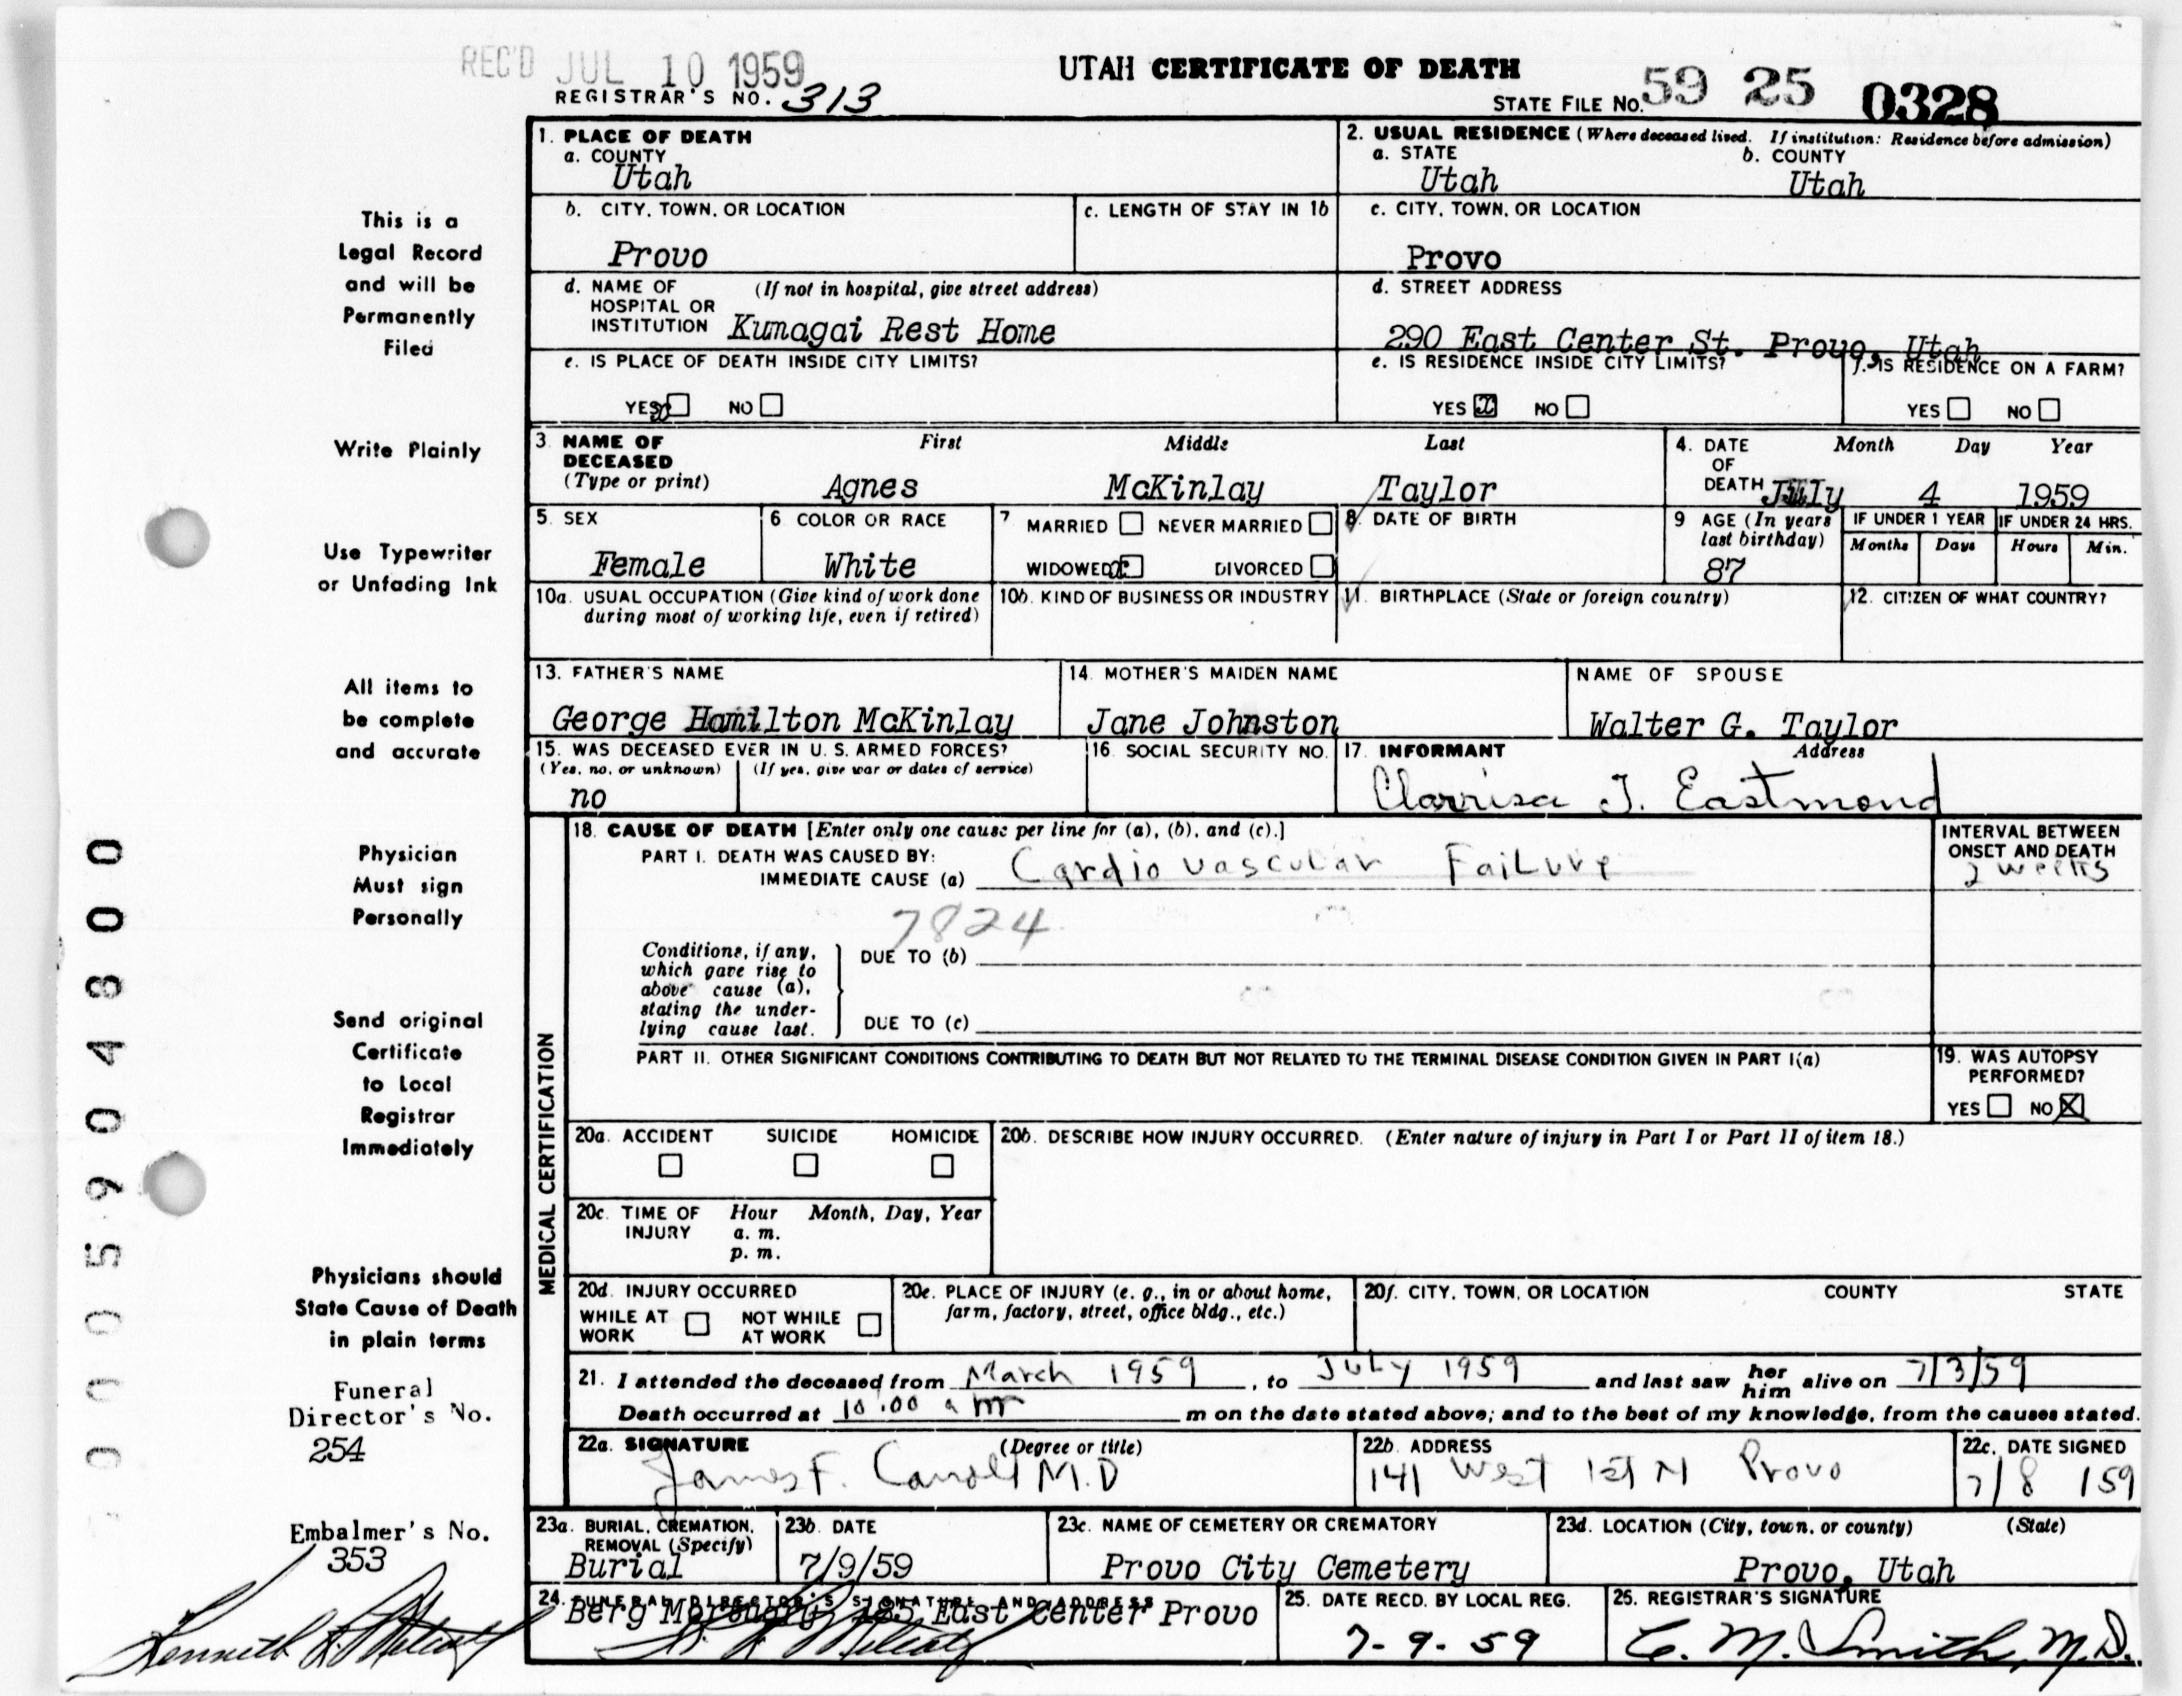 REC'D JUL 10 1959
REGISTRAR'S NO. 313
UTAH CERTIFICATE OF DEATH
STATE FILE NO. 59 25 0328
1. PLACE OF DEATH
a. COUNTY
Utah
2. USUAL RESIDENCE (Where deceased lived. If institution: Residence before admission)
a. STATE
b. COUNTY
Utah
Utah
b. CITY, TOWN, OR LOCATION
c. LENGTH OF STAY IN 1b
c. CITY, TOWN, OR LOCATION
Provo
Provo
d. NAME OF HOSPITAL OR INSTITUTION
(If not in hospital, give street address)
Kumagai Rest Home
d. STREET ADDRESS
290 East Center St. Provo, Utah
e. IS PLACE OF DEATH INSIDE CITY LIMITS?
YES x NO
e. IS RESIDENCE INSIDE CITY LIMITS?
YES x NO
f. IS RESIDENCE ON A FARM?
YES NO
3. NAME OF DECEASED
(Type or print)
First Middle Last
Agnes McKinlay Taylor
4. DATE OF DEATH
Month Day Year
July 4 1959
5. SEX
Female
6. COLOR OR RACE
White
7 MARRIED NEVER MARRIED
WIDOWED x DIVORCED
8. DATE OF BIRTH
9 AGE (In years last birthday)
87
IF UNDER 1 YEAR
Months Days
IF UNDER 24 HRS.
Hours Min.
10a. USUAL OCCUPATION (Give kind of work done
during most of working life, even if retired)
10b. KIND OF BUSINESS OR INDUSTRY
11. BIRTHPLACE (State or foreign country)
12. CITIZEN OF WHAT COUNTRY?
13. FATHER'S NAME
George Hamilton McKinlay
14. MOTHER'S MAIDEN NAME
Jane Johnston
NAME OF SPOUSE
Walter G. Taylor
15. WAS DECEASED EVER IN U. S. ARMED FORCES?
(Yes, no, or unknown) (If yes, give war or dates of service)
no
16. SOCIAL SECURITY NO.
17. INFORMANT Address
Clarrisa T. Eastmond
MEDICAL CERTIFICATION
18. CAUSE OF DEATH [Enter only one cause per line for (a), (b), and (c).]
PART I. DEATH WAS CAUSED BY:
IMMEDIATE CAUSE (a) Cardio vascular Failure
INTERVAL BETWEEN
ONSET AND DEATH
2 weeks
7824
Conditions, if any,
which gave rise to
above cause (a),
stating the under-
lying cause last.
DUE TO (b)
DUE TO (c)
PART II. OTHER SIGNIFICANT CONDITIONS CONTRIBUTING TO DEATH BUT NOT RELATED TO THE TERMINAL DISEASE CONDITION GIVEN IN PART I(a)
19. WAS AUTOPSY
PERFORMED?
YES NO X
20a. ACCIDENT SUICIDE HOMICIDE
20b. DESCRIBE HOW INJURY OCCURRED. (Enter nature of injury in Part I or Part II of item 18.)
20c. TIME OF INJURY
Hour Month, Day, Year
a. m.
p. m.
20d. INJURY OCCURRED
WHILE AT WORK
NOT WHILE AT WORK
20e. PLACE OF INJURY (e. g., in or about home,
farm, factory, street, office bldg., etc.)
20f. CITY, TOWN, OR LOCATION COUNTY STATE
21. I attended the deceased from March 1959, to July 1959 and last saw her him alive on 7/3/59
Death occurred at 10:00 a m m on the date stated above; and to the best of my knowledge, from the causes stated.
22a. SIGNATURE (Degree or title)
James F. Carroll M.D
22b. ADDRESS
141 West 1st N Provo
22c. DATE SIGNED
7/8/59
23a. BURIAL, CREMATION,
REMOVAL (Specify)
Burial
23b. DATE
7/9/59
23c. NAME OF CEMETERY OR CREMATORY
Provo City Cemetery
23d. LOCATION (City, town, or county) (State)
Provo, Utah
24. FUNERAL DIRECTOR'S SIGNATURE AND ADDRESS
Berg Mortuary 185 East Center Provo
25. DATE RECD. BY LOCAL REG.
7-9-59
26. REGISTRAR'S SIGNATURE
C. M. Smith, M.D.
This is a
Legal Record
and will be
Permanently
Filed
Write Plainly
Use Typewriter
or Unfading Ink
All items to
be complete
and accurate
Physician
Must sign
Personally
Send original
Certificate
to Local
Registrar
Immediately
Physicians should
State Cause of Death
in plain terms
Funeral
Director's No.
254
Embalmer's No.
353
0005904800